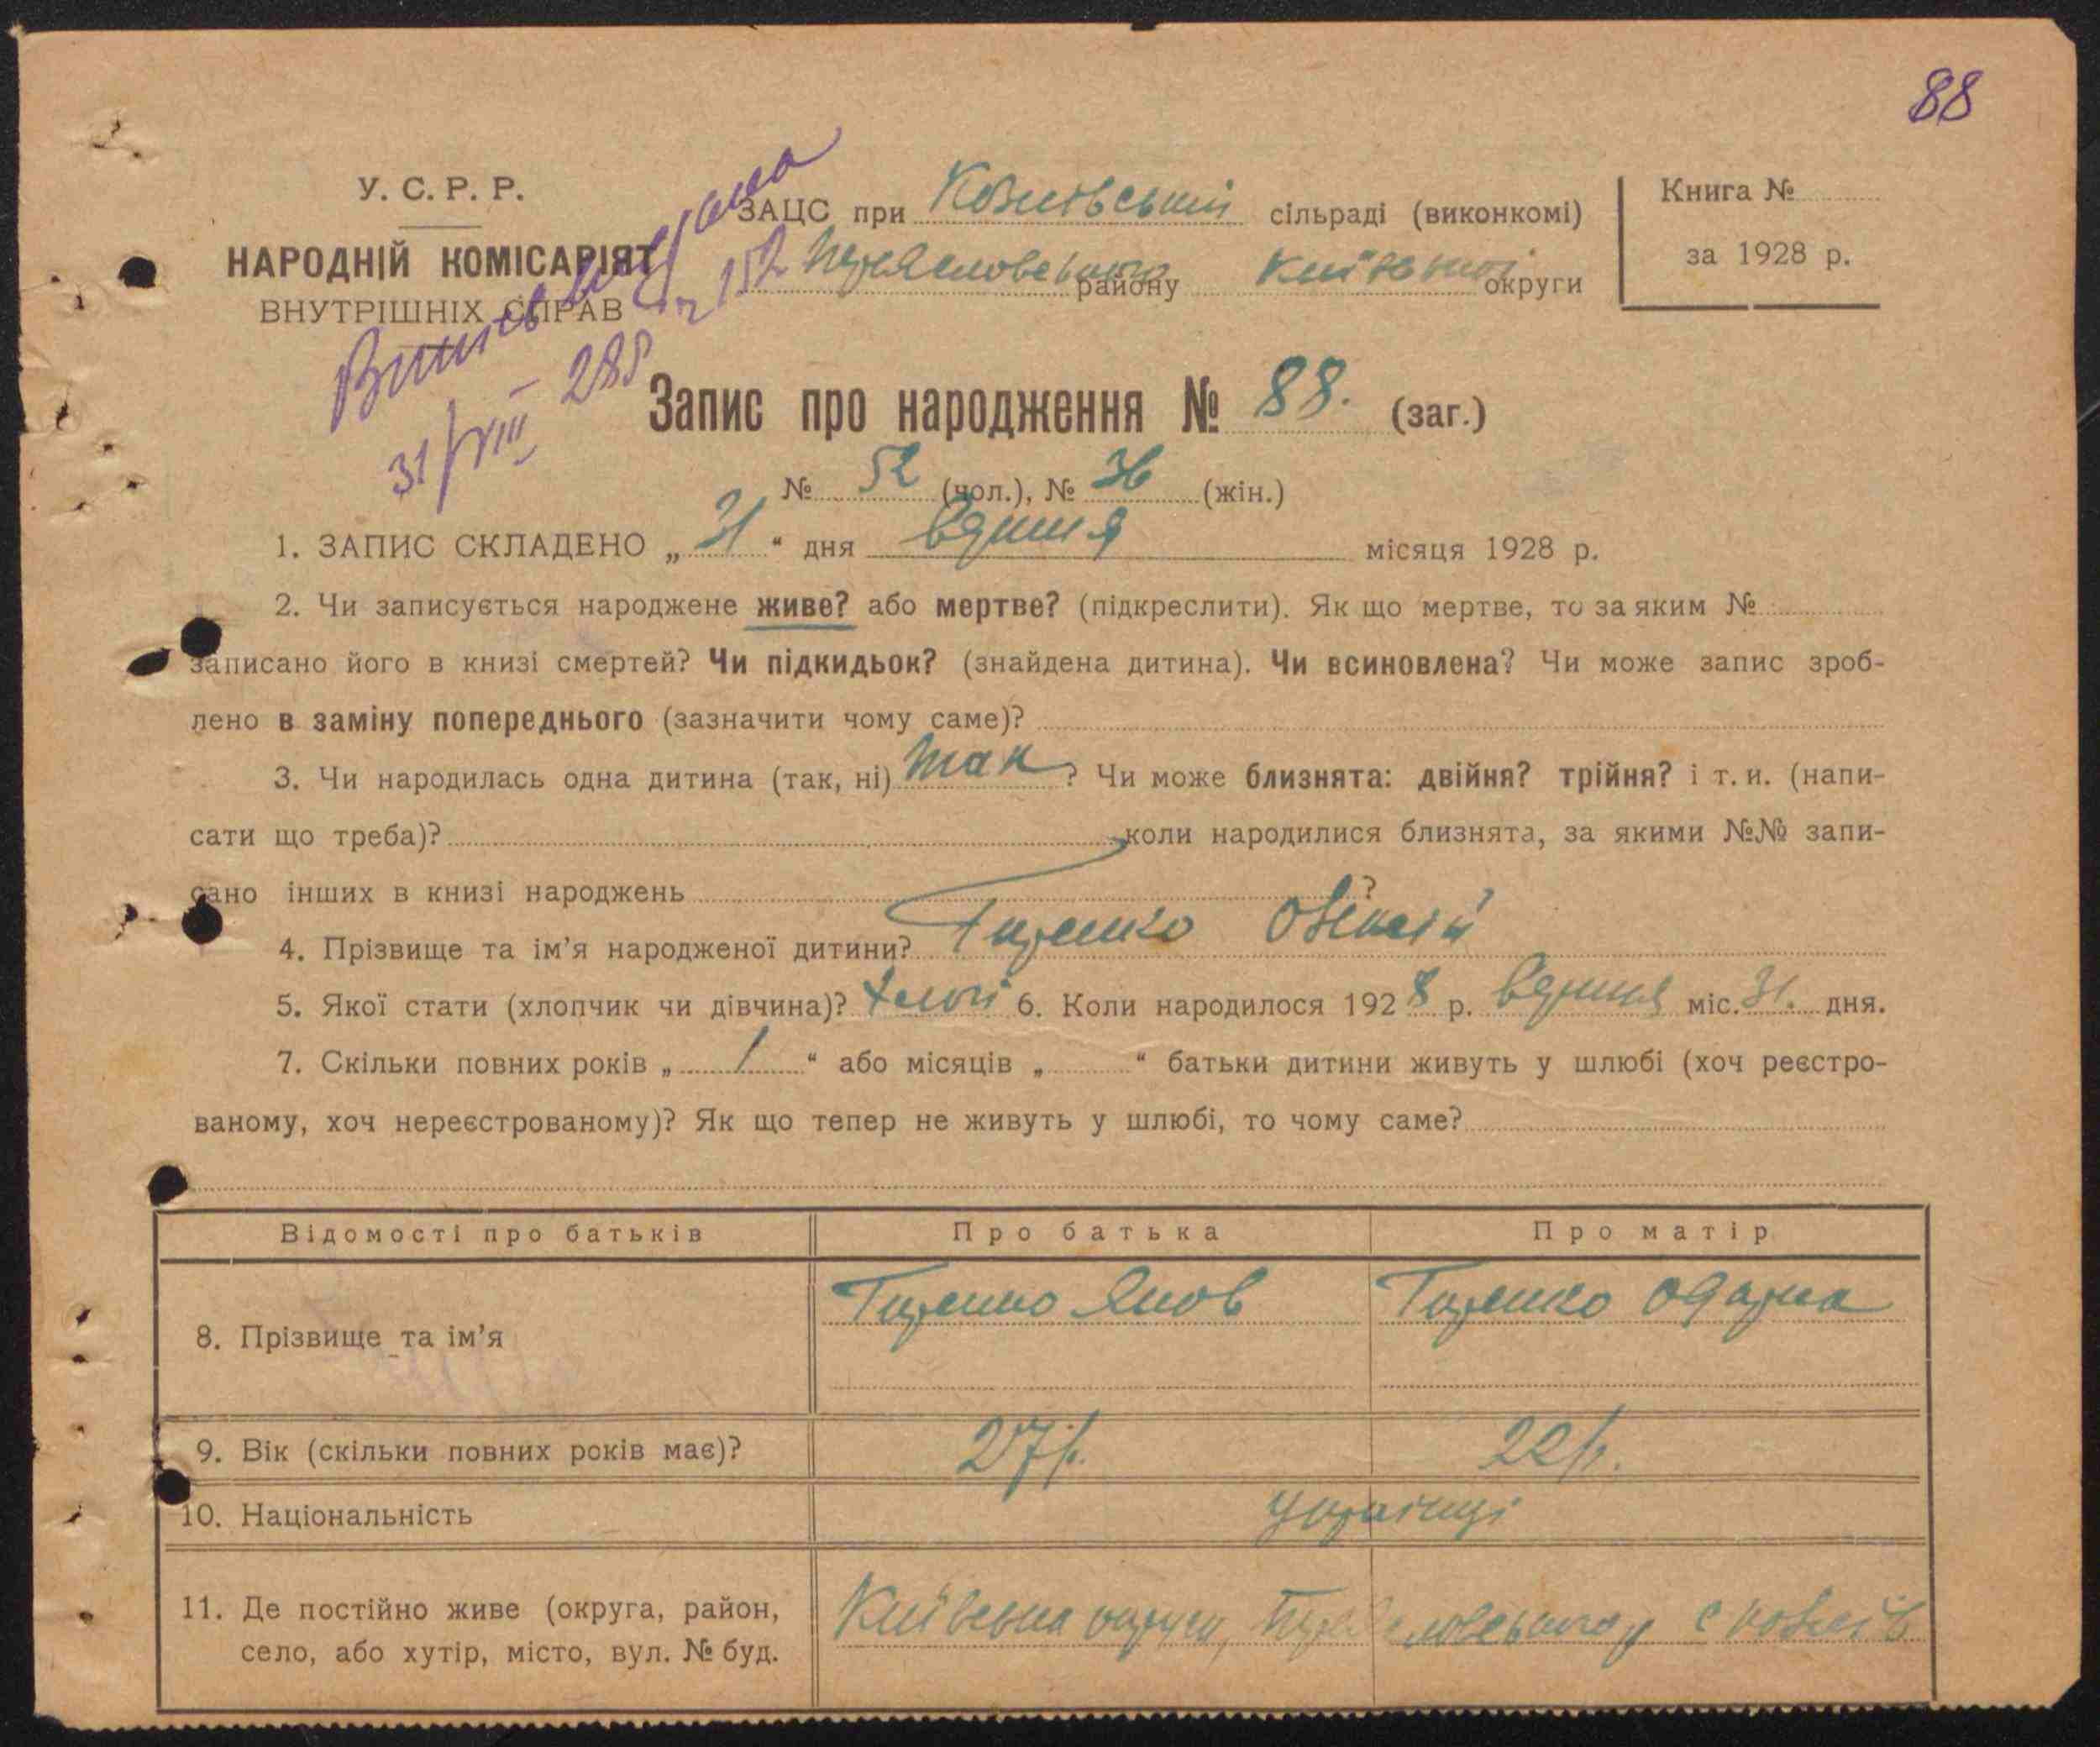 88
У. С. Р. Р.
НАРОДНІЙ КОМІСАРІЯТ
ВНУТРІШНІХ СПРАВ
ЗАЦС при сільраді (виконкомі)
району Київської округи
Книга №
за 1928 р.
31/VIII 28р
152
Запис про народження № 88. (заг.)
№ 52 (чол.), № 36 (жін.)
1. ЗАПИС СКЛАДЕНО „ 31 “ дня місяця 1928 р.
2. Чи записується народжене живе? або мертве? (підкреслити). Як що мертве, то за яким №
записано його в книзі смертей? Чи підкидьок? (знайдена дитина). Чи всиновлена? Чи може запис зроб-
лено в заміну попереднього (зазначити чому саме)?
3. Чи народилась одна дитина (так, ні) так ? Чи може близнята: двійня? трійня? і т. и. (напи-
сати що треба)? коли народилися близнята, за якими №№ запи-
сано інших в книзі народжень ?
4. Прізвище та ім’я народженої дитини?
5. Якої стати (хлопчик чи дівчина)? 6. Коли народилося 1928 р. міс. 31. дня.
7. Скільки повних років „ 1 “ або місяців „ “ батьки дитини живуть у шлюбі (хоч реєстро-
ваному, хоч нереєстрованому)? Як що тепер не живуть у шлюбі, то чому саме?
Відомості про батьків Про батька Про матір
8. Прізвище та ім’я Яков Одарка
9. Вік (скільки повних років має)? 27 р. 22 р.
10. Національність українці
11. Де постійно живе (округа, район, Київська округа,
село, або хутір, місто, вул. № буд.